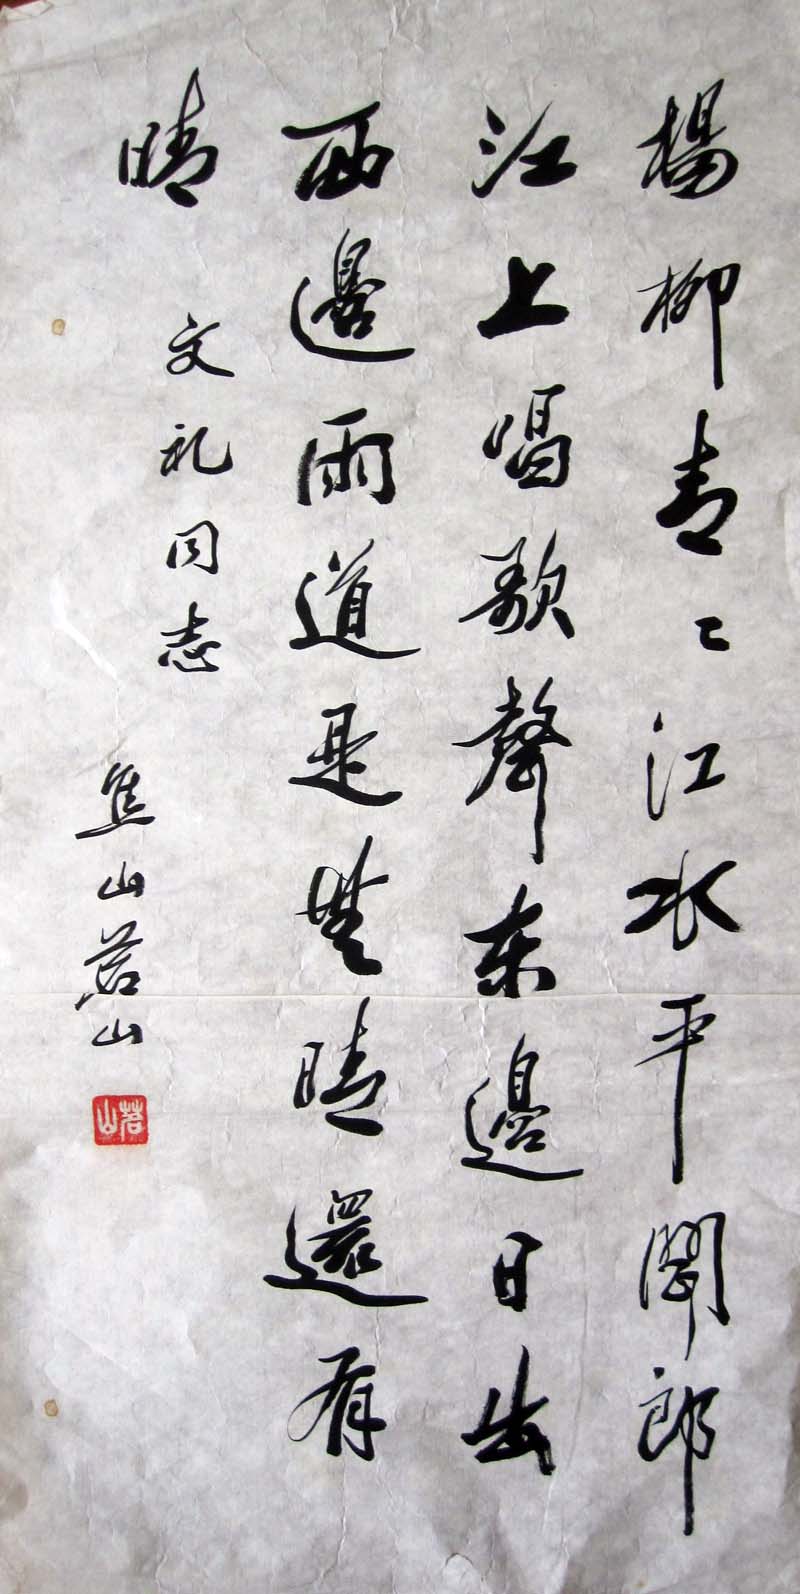 楊柳青〻江水平聞郎
江上唱歌聲东邊日出
西邊雨道是無晴還有
晴
文礼同志
焦山茗山
茗山